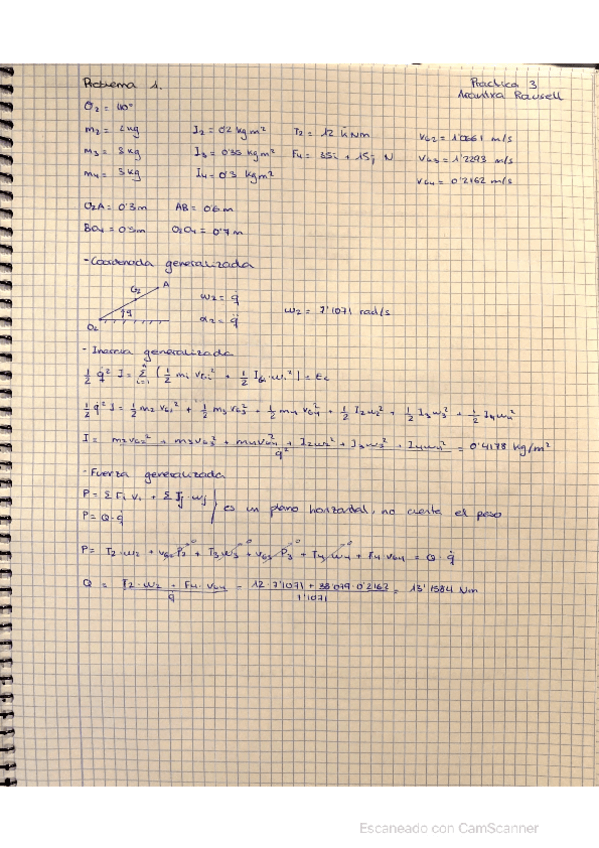 Problema 1. Practica 3
Arantxa Rausell
θ₂ = 110°
m₂ = 2 kg I₂ = 0'2 kg m² T₂ = 12 k̂ Nm VG2 = 1'0661 m/s
m₃ = 3 kg I₃ = 0'35 kg m² F₄ = 35i + 15j N VG3 = 1'2293 m/s
m₄ = 3 kg I₄ = 0'3 kg m² VG4 = 0'2162 m/s
O₂A = 0'3 m AB = 0'6 m
BO₄ = 0'5 m O₂O₄ = 0'7 m
- Coordenada generalizada
G₂ A ω₂ = q̇
q ω₂ = 7'1071 rad/s
O₂ α₂ = q̈
- Inercia generalizada
½ q̇² I = Σ [½ mᵢ VGi² + ½ IGi · ωi²] = Ec
½ q̇² I = ½ m₂ VG2² + ½ m₃ VG3² + ½ m₄ VG4² + ½ I₂ω₂² + ½ I₃ω₃² + ½ I₄ω₄²
I = (m₂VG2² + m₃VG3² + m₄VG4² + I₂ω₂² + I₃ω₃² + I₄ω₄²) / q̇² = 0'4178 kg/m²
- Fuerza generalizada
P = Σ Fi Vi + Σ Tj · ωj
es un plano horizontal, no cuenta el peso
P = Q · q̇
P = T₂ · ω₂ + VG2 P₂ + T₃ ω₃ + VG3 P₃ + T₄ ω₄ + F₄ VG4 = Q · q̇
Q = (T₂ · ω₂ + F₄ · VG4) / q̇ = (12 · 7'1071 + 38'079 · 0'2162) / 7'1071 = 13'1584 Nm
Escaneado con CamScanner